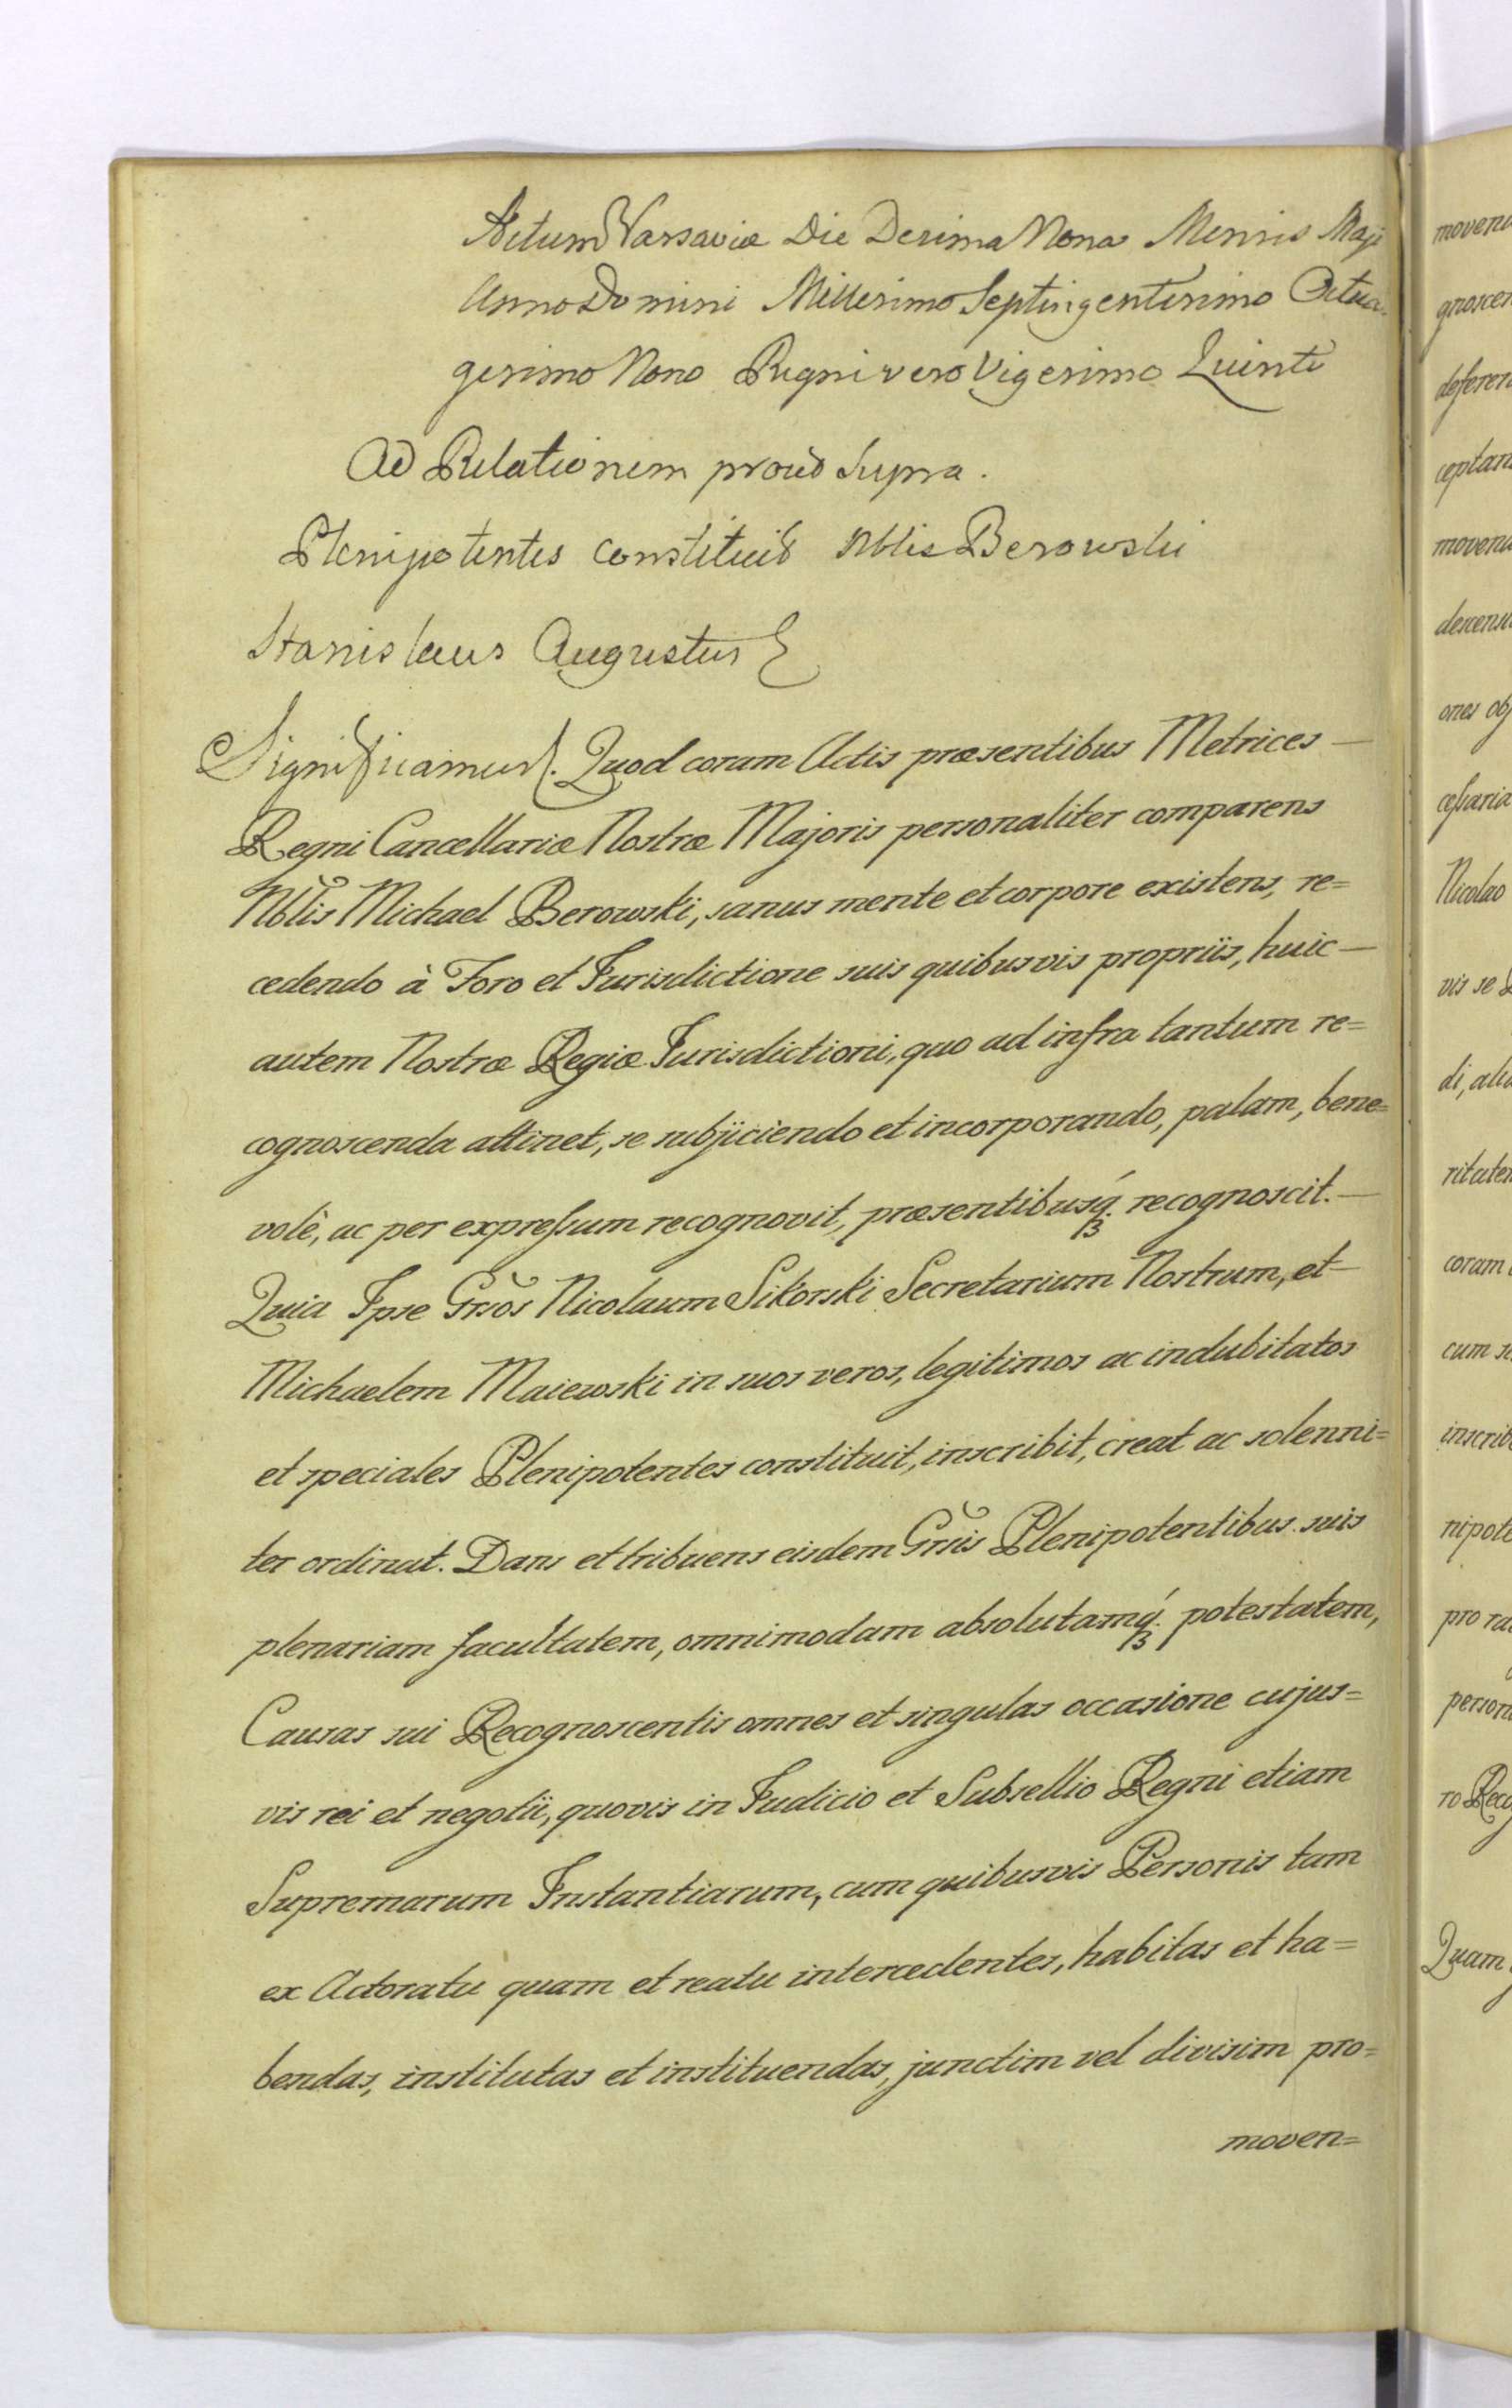 Actum Varsaviæ Die Decima Nona Mensis Maji
Anno Domini Millesimo Septingentesimo Octua-
gesimo Nono Regni vero Vigesimo Quinto
Ad Relationem prout Supra.
Plenipotentes constituit Nblis Berowski
Stanislaus Augustus
Significamus. Quod coram Actis præsentibus Metrices —
Regni Cancellariæ Nostræ Majoris personaliter comparens
Nblis Michael Berowski, sanus mente et corpore existens, re=
cedendo à Foro et Jurisdictione suis quibusvis propriis, huic —
autem Nostræ Regiæ Jurisdictioni, quo ad infra tantum re=
cognoscenda attinet, se subjiciendo et incorporando, palam, bene=
volè, ac per expressum recognovit, præsentibusq́ recognoscit. —
Quia Ipse Grsos Nicolaum Sikorski Secretarium Nostrum, et —
Michaelem Maiewski in suos veros, legitimos ac indubitatos
et speciales Plenipotentes constituit, inscribit, creat ac solenni=
ter ordinat. Dans et tribuens eisdem Grsis Plenipotentibus suis
plenariam facultatem, omnimodam absolutamq́ potestatem,
Causas sui Recognoscentis omnes et singulas occasione cujus=
vis rei et negotii, quovis in Judicio et Subsellio Regni etiam
Supremarum Instantiarum, cum quibusvis Personis tam
ex Actoratu quam et reatu intercedentes, habitas et ha=
bendas, institutas et instituendas, junctim vel divisim pro=
moven=